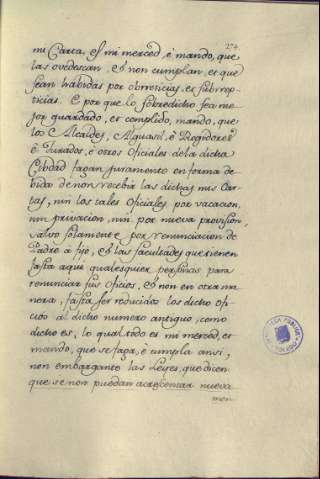 274.
mi Carta, es mi merced, è mando, que
las ovedescan, è non cumplan, et que
sean havidas por obrreticias, et subrrep-
ticias. E por que lo sobredicho sea me-
jor guardado, et complido, mando, que
los Alcaldes, Alguasil, è Regidores,
è Jurados, è otros Oficiales de la dicha
Ciudad fagan juramento en forma de-
bida de non recebir las dichas mis Car-
tas, nin los tales Oficiales por vacacion,
nin privacion, nin por nueva provision,
salvo solamente por renunciacion de
Padre a fijo, è las facultades que tienen
fasta aqui qualesquier personas para
renunciar sus oficios, è non en otra ma-
nera, fasta ser reducidos los dicho ofi-
cios al dicho numero antiguo, como
dicho es, lo qual todo es mi merced, et
mando, que se faga, è cumpla ansi,
non embargante las Leyes, que dicen
que se non puedan acrescentar nueva
men-